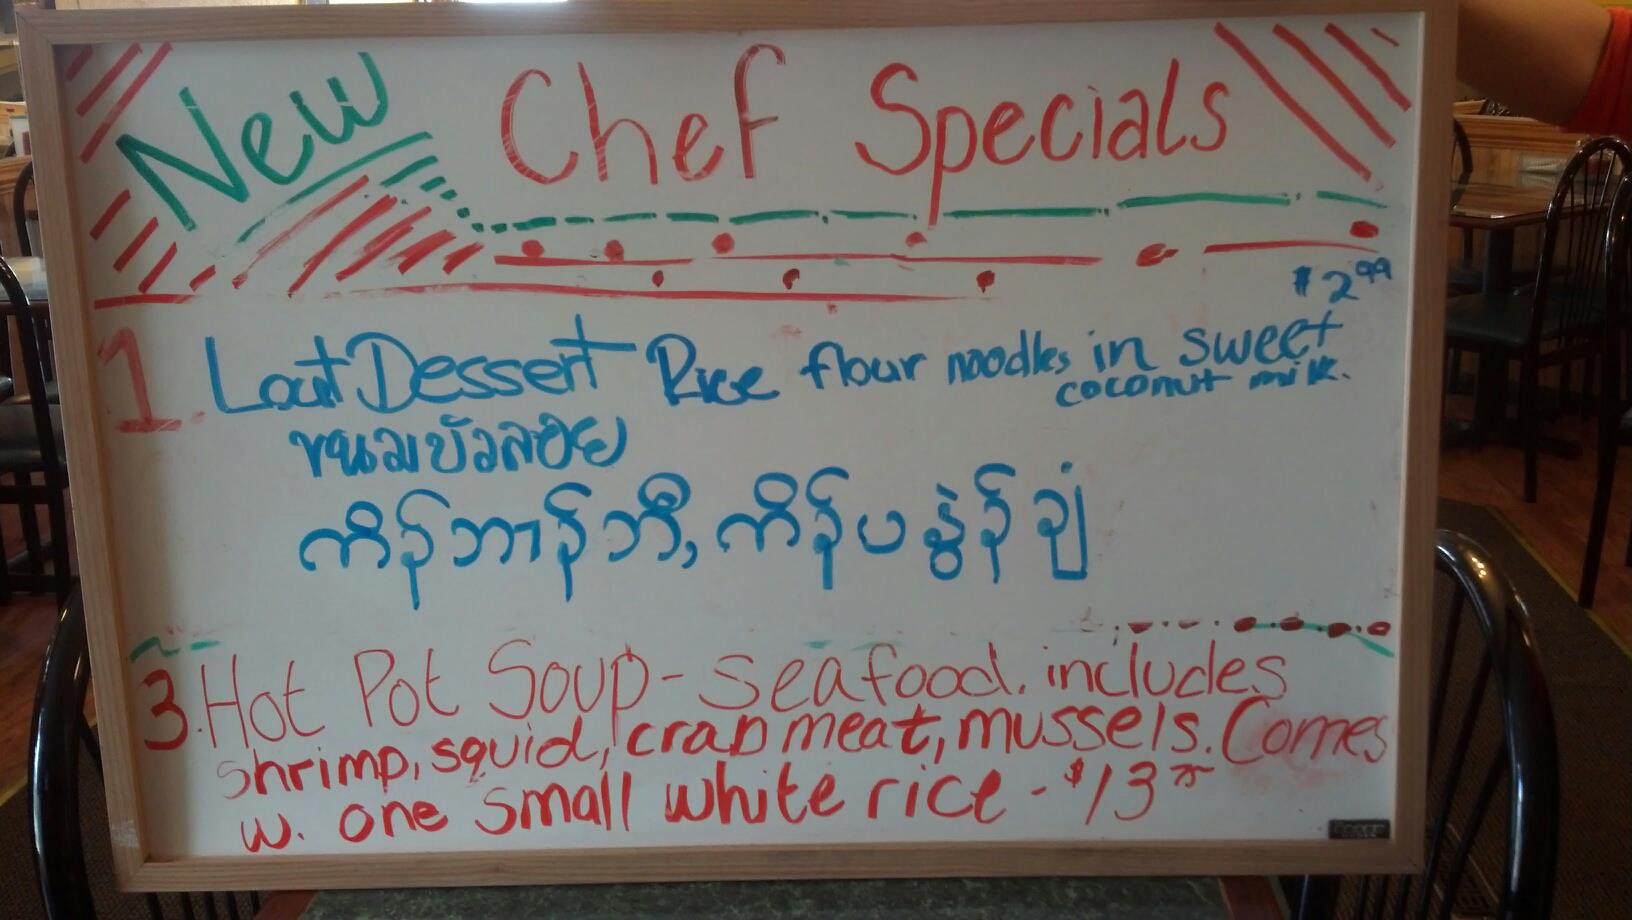 New Chef Specials
$2.99
1. Lout Dessert Rice flour noodles in sweet
coconut milk.
ขนมบัวลอย
3. Hot Pot Soup - Seafood. includes
shrimp, squid, crab meat, mussels. Comes
w. one small white rice - $13